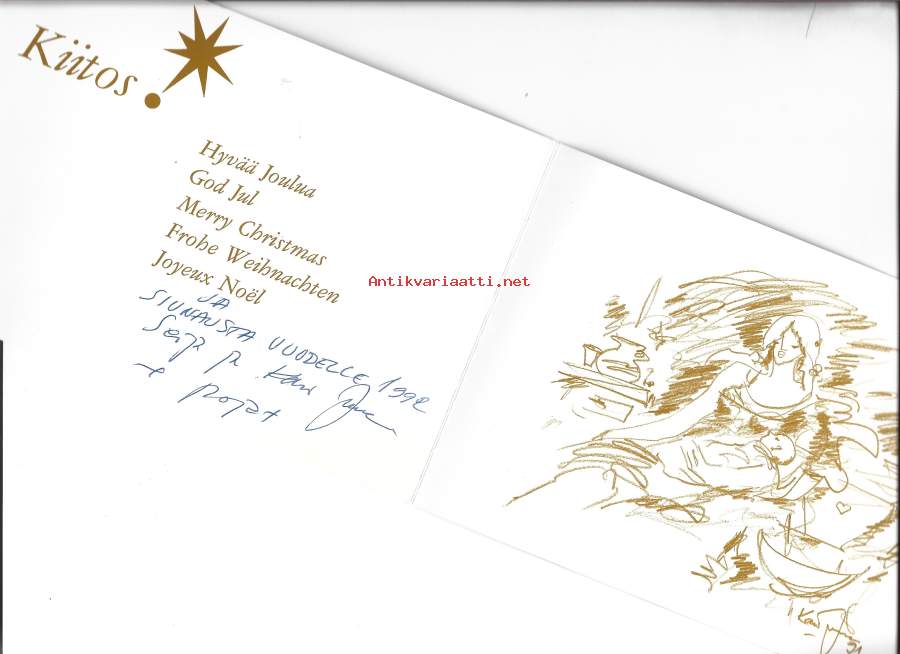 Kiitos.
Hyvää Joulua
God Jul
Merry Christmas
Frohe Weihnachten
Joyeux Noël
JA
SIUNAUSTA VUODELLE 1992
Kari
+ pojat
Antikvariaatti.net
Kari
91